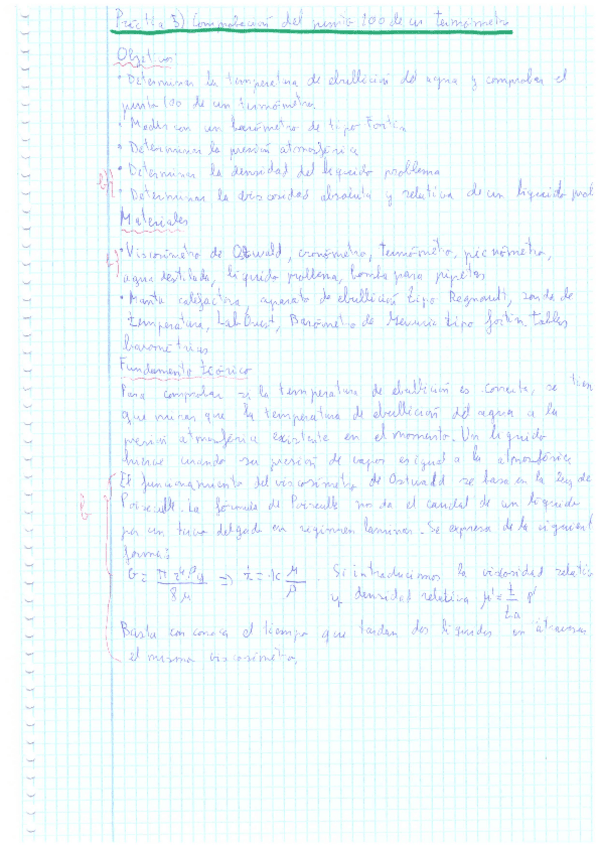 Práctica 3) Comprobación del punto 100 de un termómetro
Objetivos
• Determinar la temperatura de ebullición del agua y comprobar el
punto 100 de un termómetro
• Medir con un barómetro de tipo Fortin
• Determinar la presión atmosférica
• Determinar la densidad del líquido problema
b)
• Determinar la viscosidad absoluta y relativa de un líquido prob
Materiales
b)
• Viscosímetro de Ostwald, cronómetro, termómetro, picnómetro,
agua destilada, líquido problema, bomba para pipetas
• Manta calefactora, aparato de ebullición tipo Regnault, sonda de
temperatura, LabQuest, Barómetro de Mercurio tipo fortin. Tablas
barométricas
Fundamento teórico
Para comprobar si la temperatura de ebullición es correcta, se tien
que mirar que la temperatura de ebullición del agua a la
presión atmosférica existente en el momento. Un líquido
hierve cuando su presión de vapor es igual a la atmosférica
El funcionamiento del viscosímetro de Ostwald se basa en la Ley de
Poiseuille. La fórmula de Poiseuille nos da el caudal de un líquido
b
por un tubo delgado en regimen laminar. Se expresa de la siguient
forma:
G = π r⁴ρg / 8μ ⇒ t = k μ/ρ Si introducimos la viscosidad relativ
y densidad relativa μ' = t/ta ρ'
Basta con conocer el tiempo que tardan dos líquidos en atravesar
el mismo viscosímetro.